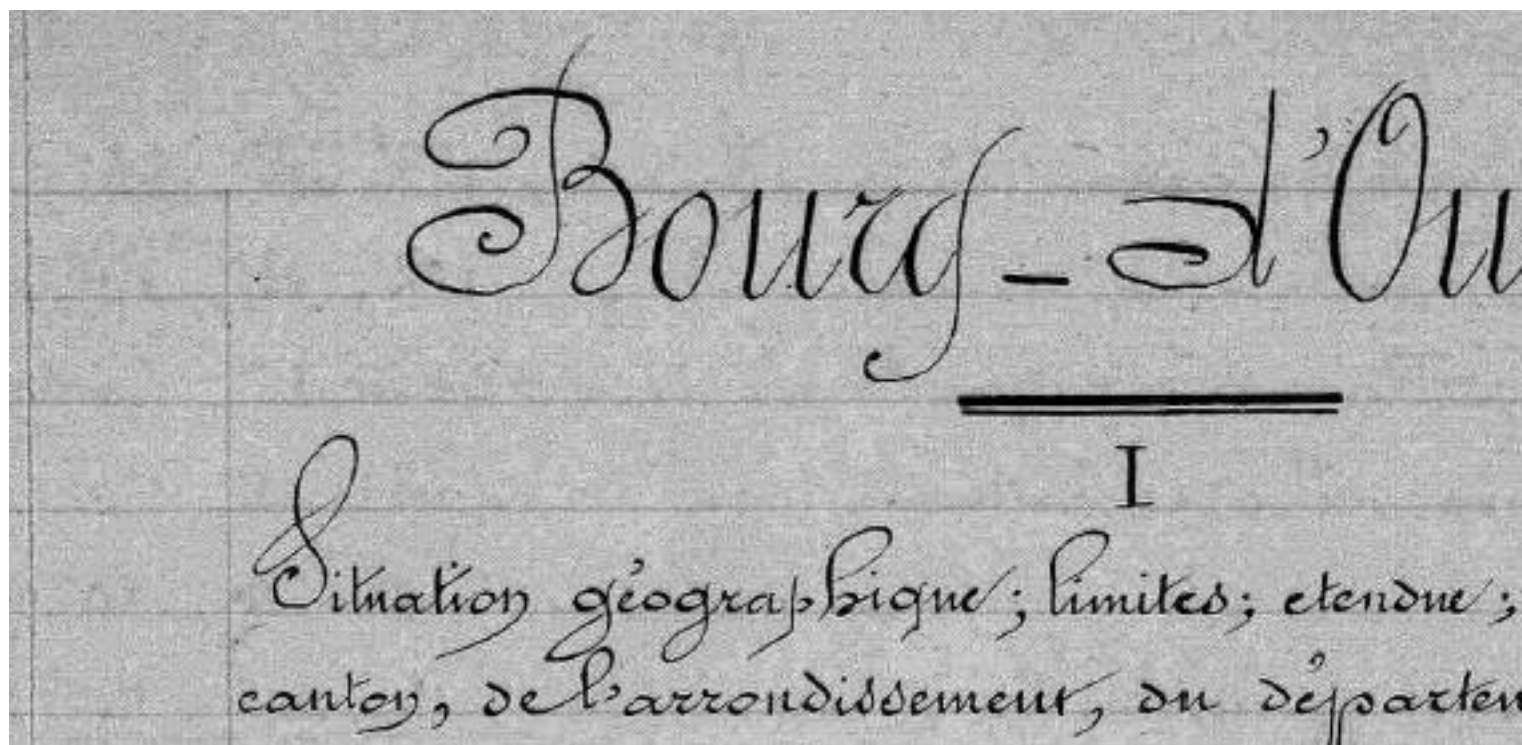 Bourg-d'Ou
I
Situation géographique; limites; etendue;
canton, de l'arrondissement, du départem